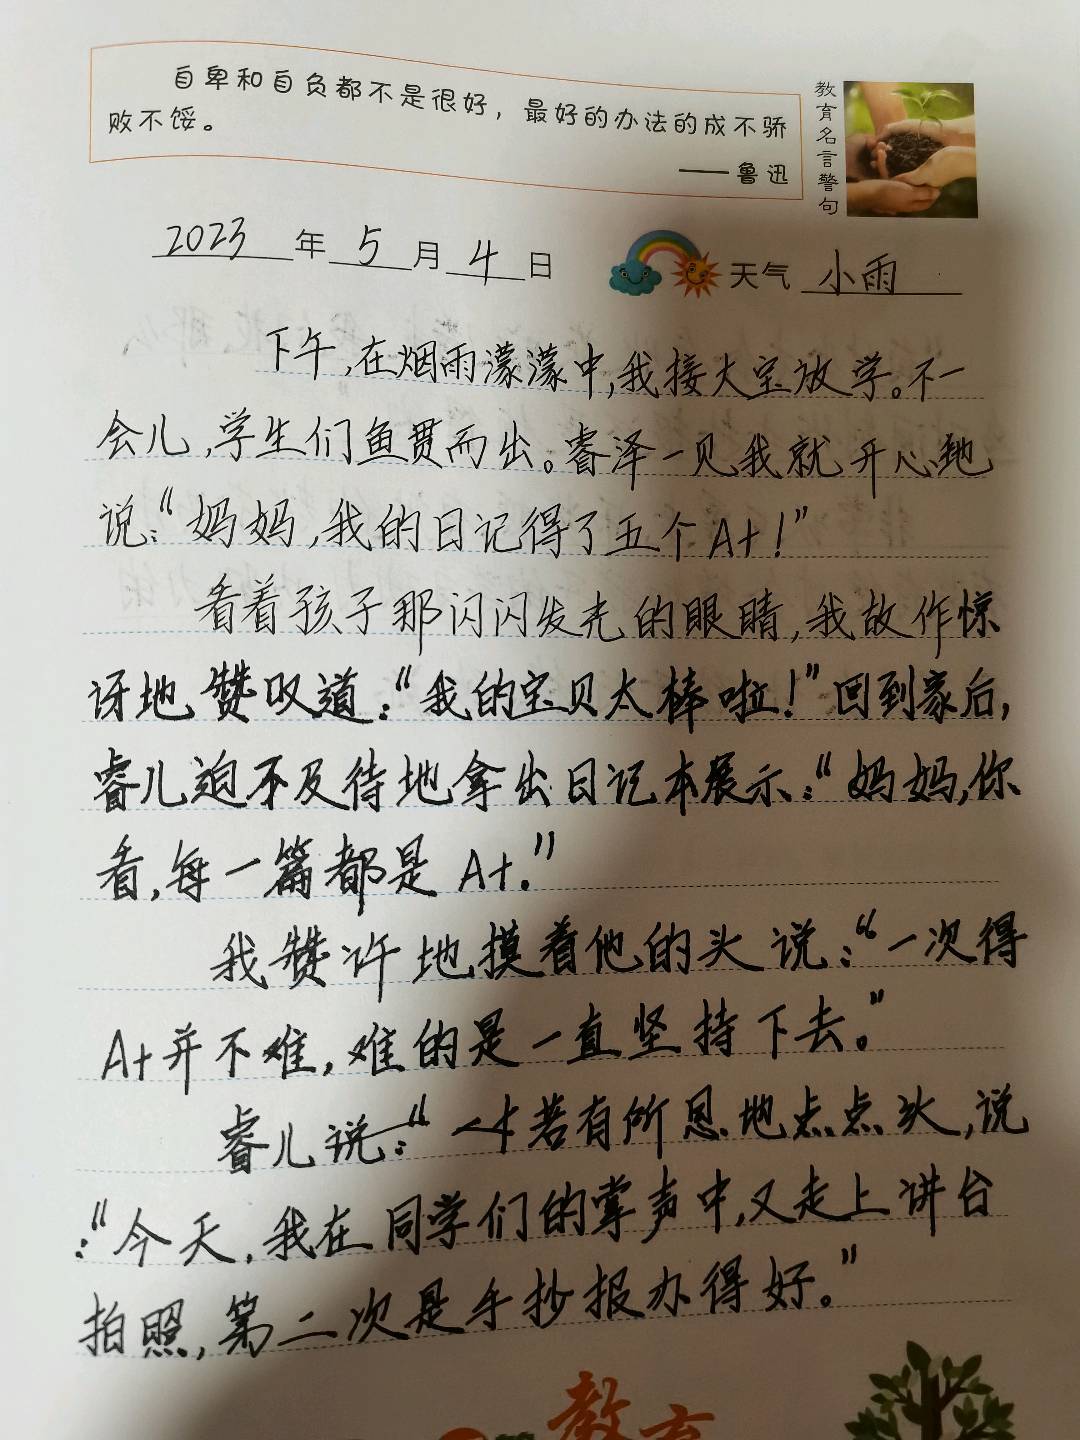 自卑和自负都不是很好，最好的办法的成不骄
败不馁。
——鲁迅
教育名言警句
2023年5月4日
天气 小雨
下午,在烟雨濛濛中,我接大宝放学。不一
会儿,学生们鱼贯而出。睿泽一见我就开心地
说:“妈妈,我的日记得了五个A+!”
看着孩子那闪闪发光的眼睛,我故作惊
讶地赞叹道:“我的宝贝太棒啦!”回到家后,
睿儿迫不及待地拿出日记本展示:“妈妈,你
看,每一篇都是A+.”
我赞许地摸着他的头说:“一次得
A+并不难,难的是一直坚持下去。”
睿儿若有所思地点点头,说
:“今天,我在同学们的掌声中,又走上讲台
拍照,第二次是手抄报办得好。”
教育